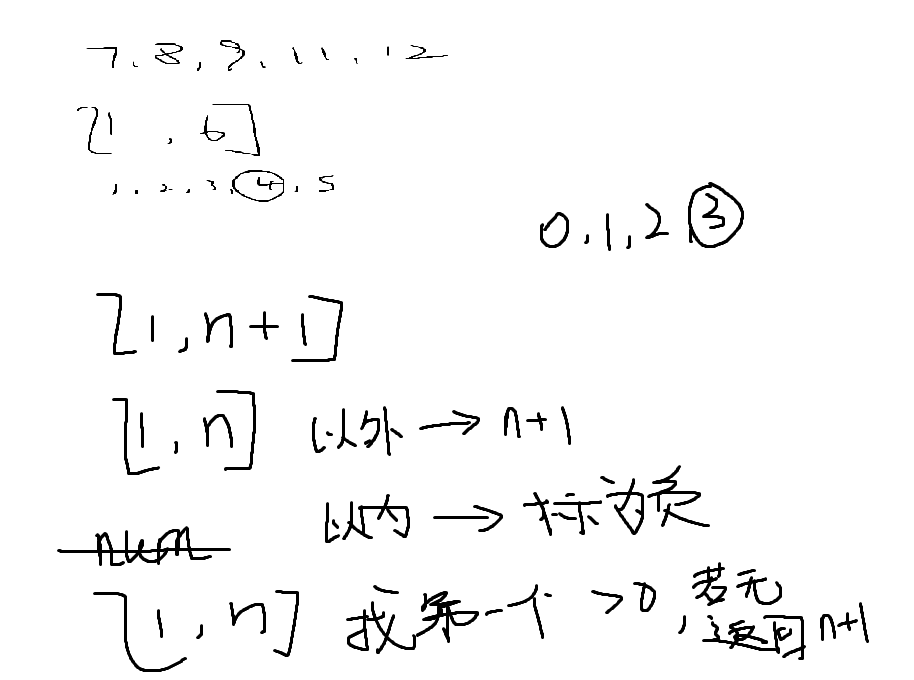 7,8,9,11,12
[1,6]
1,2,3,4,5
0,1,2 3
[1,n+1]
[1,n] 以外→n+1
以内→标为负
num
[1,n] 找第一个>0,若无
返回n+1